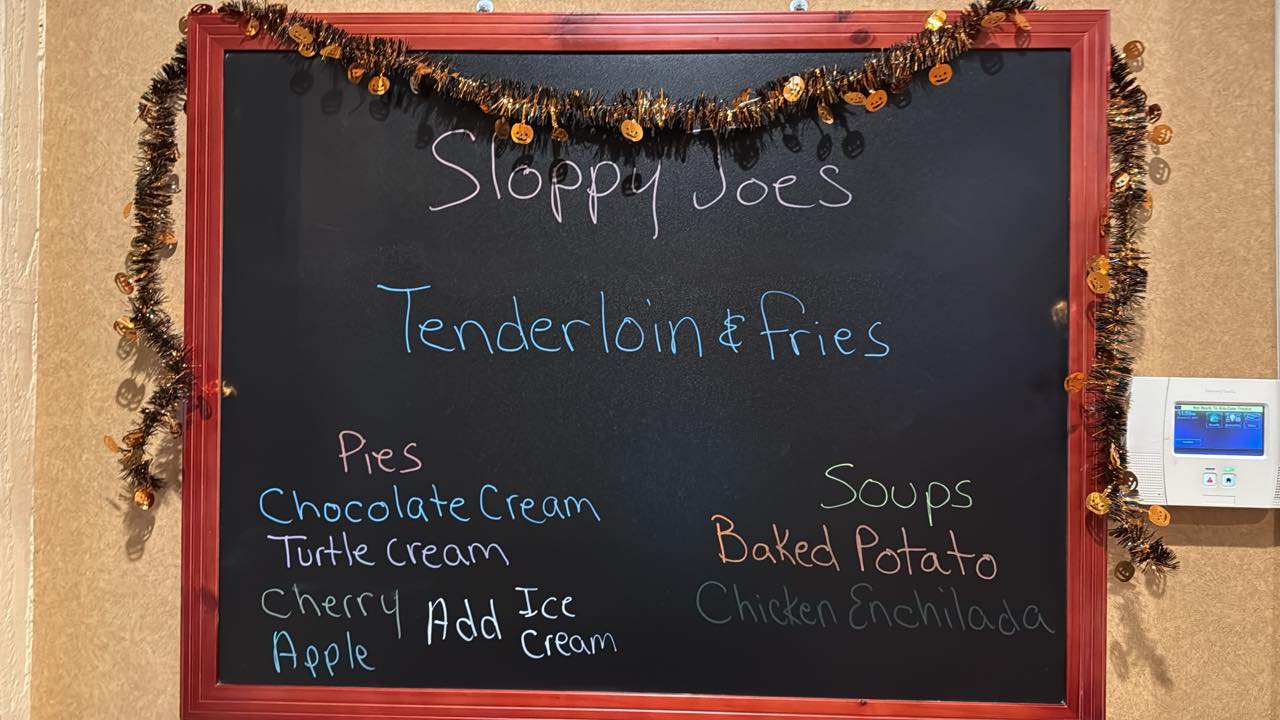 Sloppy Joes
Tenderloin & fries
Pies
Chocolate Cream
Turtle Cream
Cherry
Apple
Add Ice
Cream
Soups
Baked Potato
Chicken Enchilada